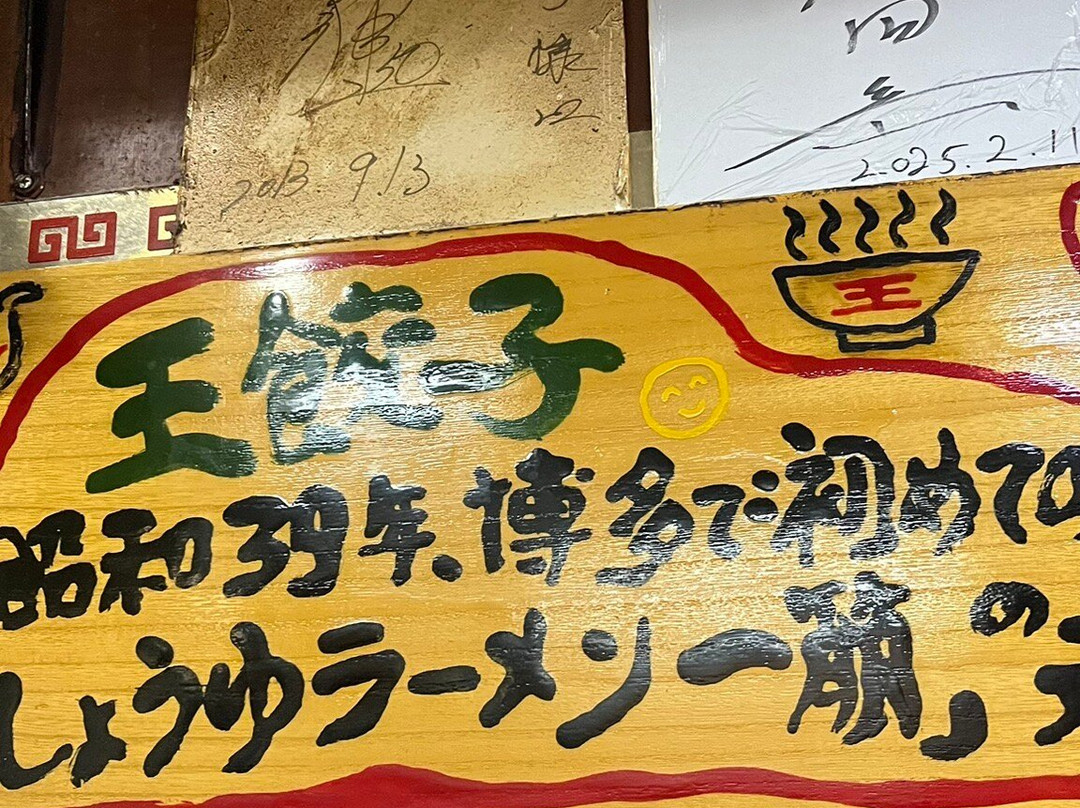 2013.9.13
2025.2.11
王
王餃子
昭和39年、博多で初めての
しょうゆラーメン一筋」